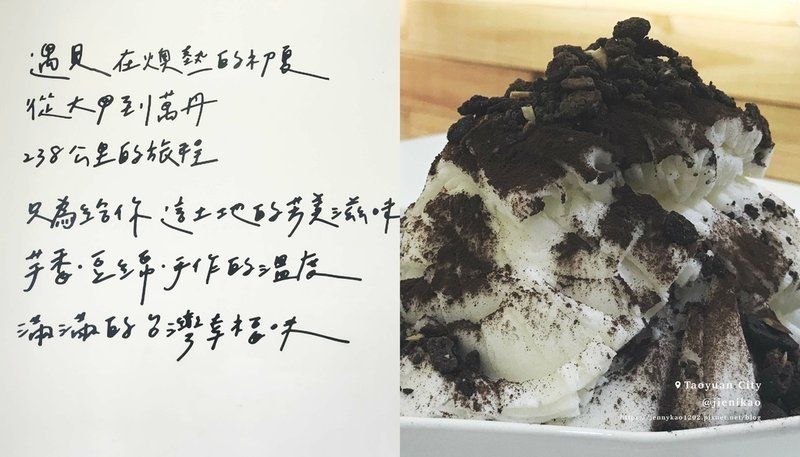 遇見 在燠熱的初夏
從大甲到萬丹
238公里的旅程
只為給你 這土地的芳美滋味
芋香·豆綿·手作的溫度
滿滿的台灣幸福味
Taoyuan City
@jienikao
https://jennykao1202.pixnet.net/blog